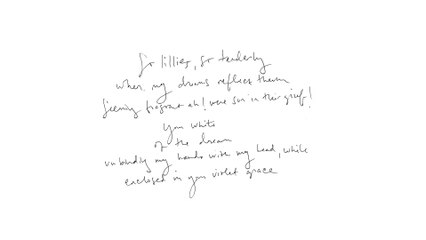 So lillies, so tenderly
when my drums reflect them
fragrant ah! were sun in their grief!
You white
of the dream
my hands with my head, while
enclosed in your violet grace